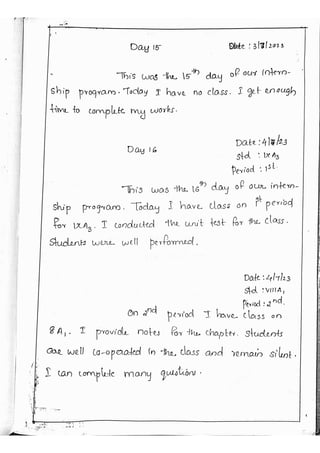 Day 15
Date : 3/7/2023
This was the 15th day of our intern-
ship program. Today I have no class. I get enough
time to complete my works.
Date : 4/7/23
Day 16
Std : IX A3
Period : 1st
This was the 16th day of our intern-
ship program. Today I have class on 1st period
for IX A3. I conducted the unit test for the class.
Students were well performed.
Date : 4/7/23
Std : VIII A1
Period : 2nd.
On 2nd period I have class on
8 A1. I provide notes for the chapter. Students
are well co-operated in the class and remain silent.
I can complete many questions.